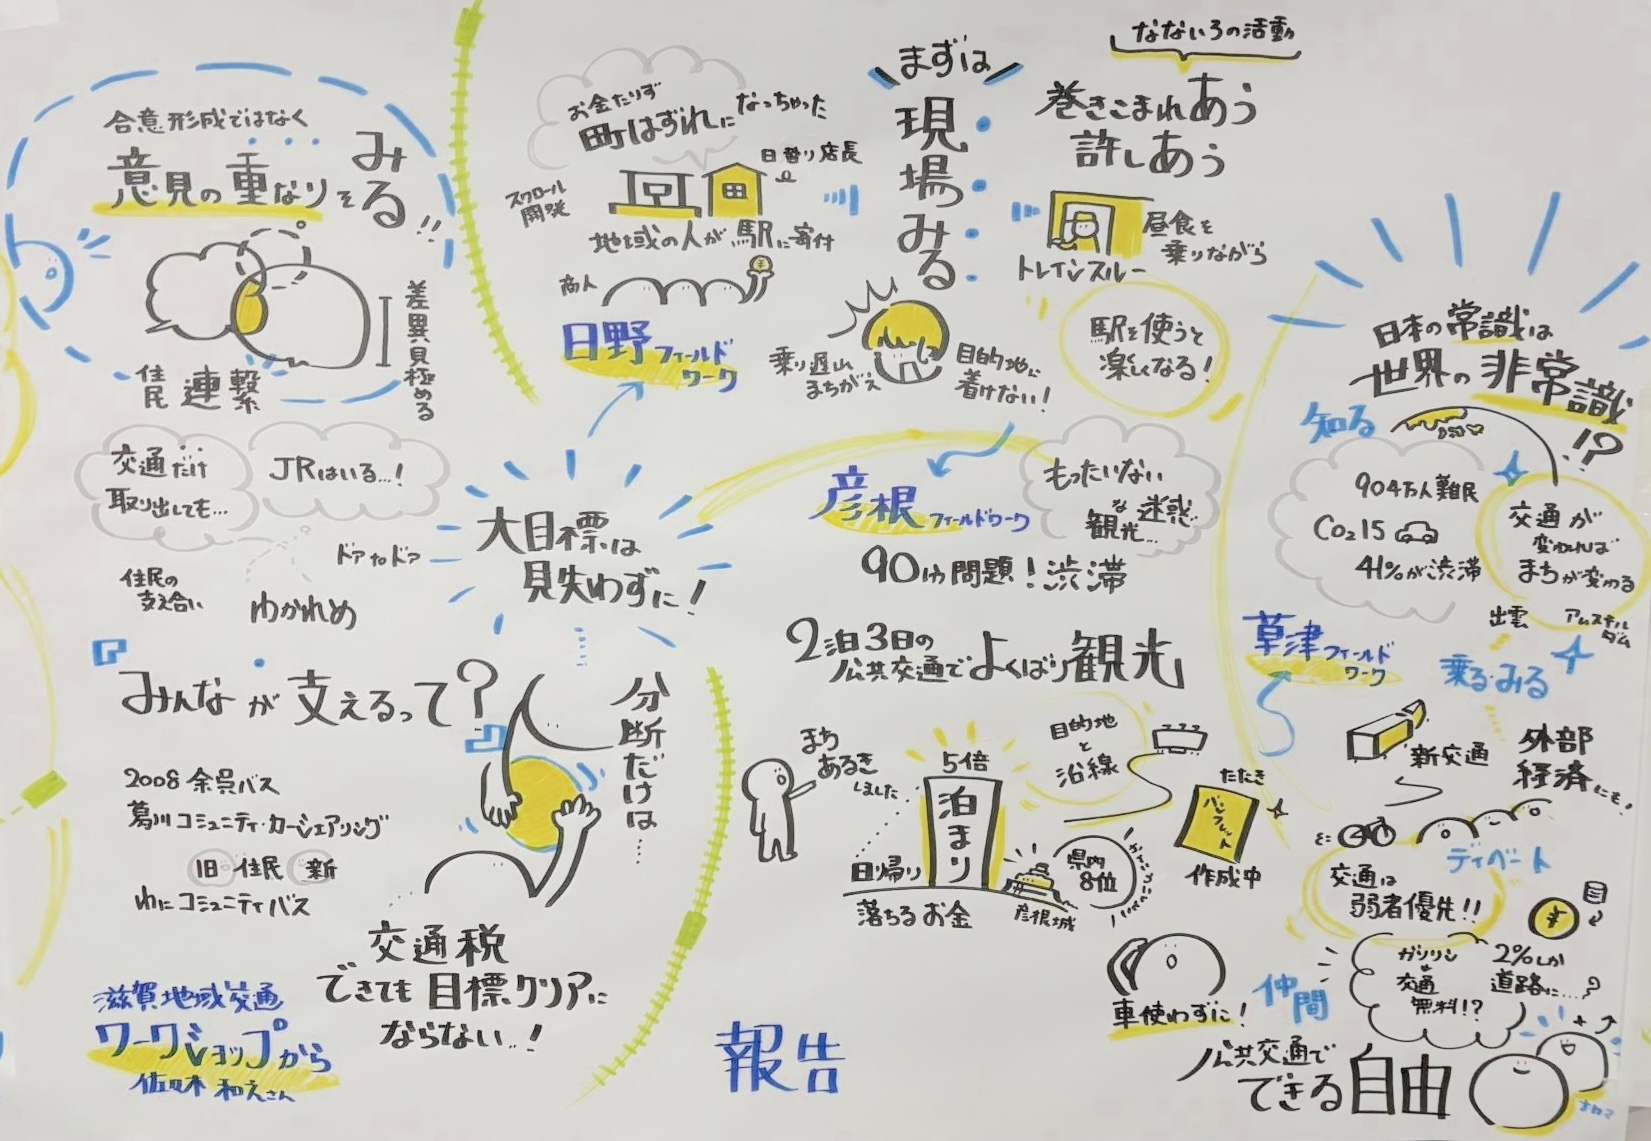 なないろの活動
まずは
現場みる
巻きこまれあう
許しあう
昼食を
乗りながら
トレインスルー
駅を使うと
楽しくなる!
お金たりず
町はずれになっちゃった
日替り店長
スクロール
開発
地域の人が駅に寄付
商人
日野フィールド
ワーク
乗り遅れ
まちがえ
目的地に
着けない!
合意形成ではなく
意見の重なりをみる!!
差異見極める
住民
連繋
交通だけ
取り出しても…
JRはいる…!
ドアtoドア
住民の
支え合い
わかれめ
大目標は
見失わずに!
みんなが支えるって?
分断だけは…
2008 余呉バス
葛川コミュニティ・カーシェアリング
旧 住民 新
わにコミュニティバス
交通税
できても目標クリアに
ならない…!
滋賀地域交通
ワークショップから
佐々木 和之さん
報告
彦根フィールドワーク
もったいない
な迷惑
観光…
90分問題!渋滞
2泊3日の
公共交通でよくばり観光
まち
あるき
しました
5倍
泊まり
日帰り
落ちるお金
目的地
と
沿線
県内
8位
彦根城
たたき
パンフレット
作成中
日本の常識は
世界の非常識
!?
知る
904万人難民
CO2 15
41%が渋滞
交通が
変われば
まちが変わる
出雲
アムステル
ダム
草津フィールド
ワーク
乗る・みる
新交通
外部
経済にも!
ディベート
交通は
弱者優先!!
ガソリン
交通
無料!?
2%しか
道路に…?
車使わずに!
仲間
公共交通で
できる自由